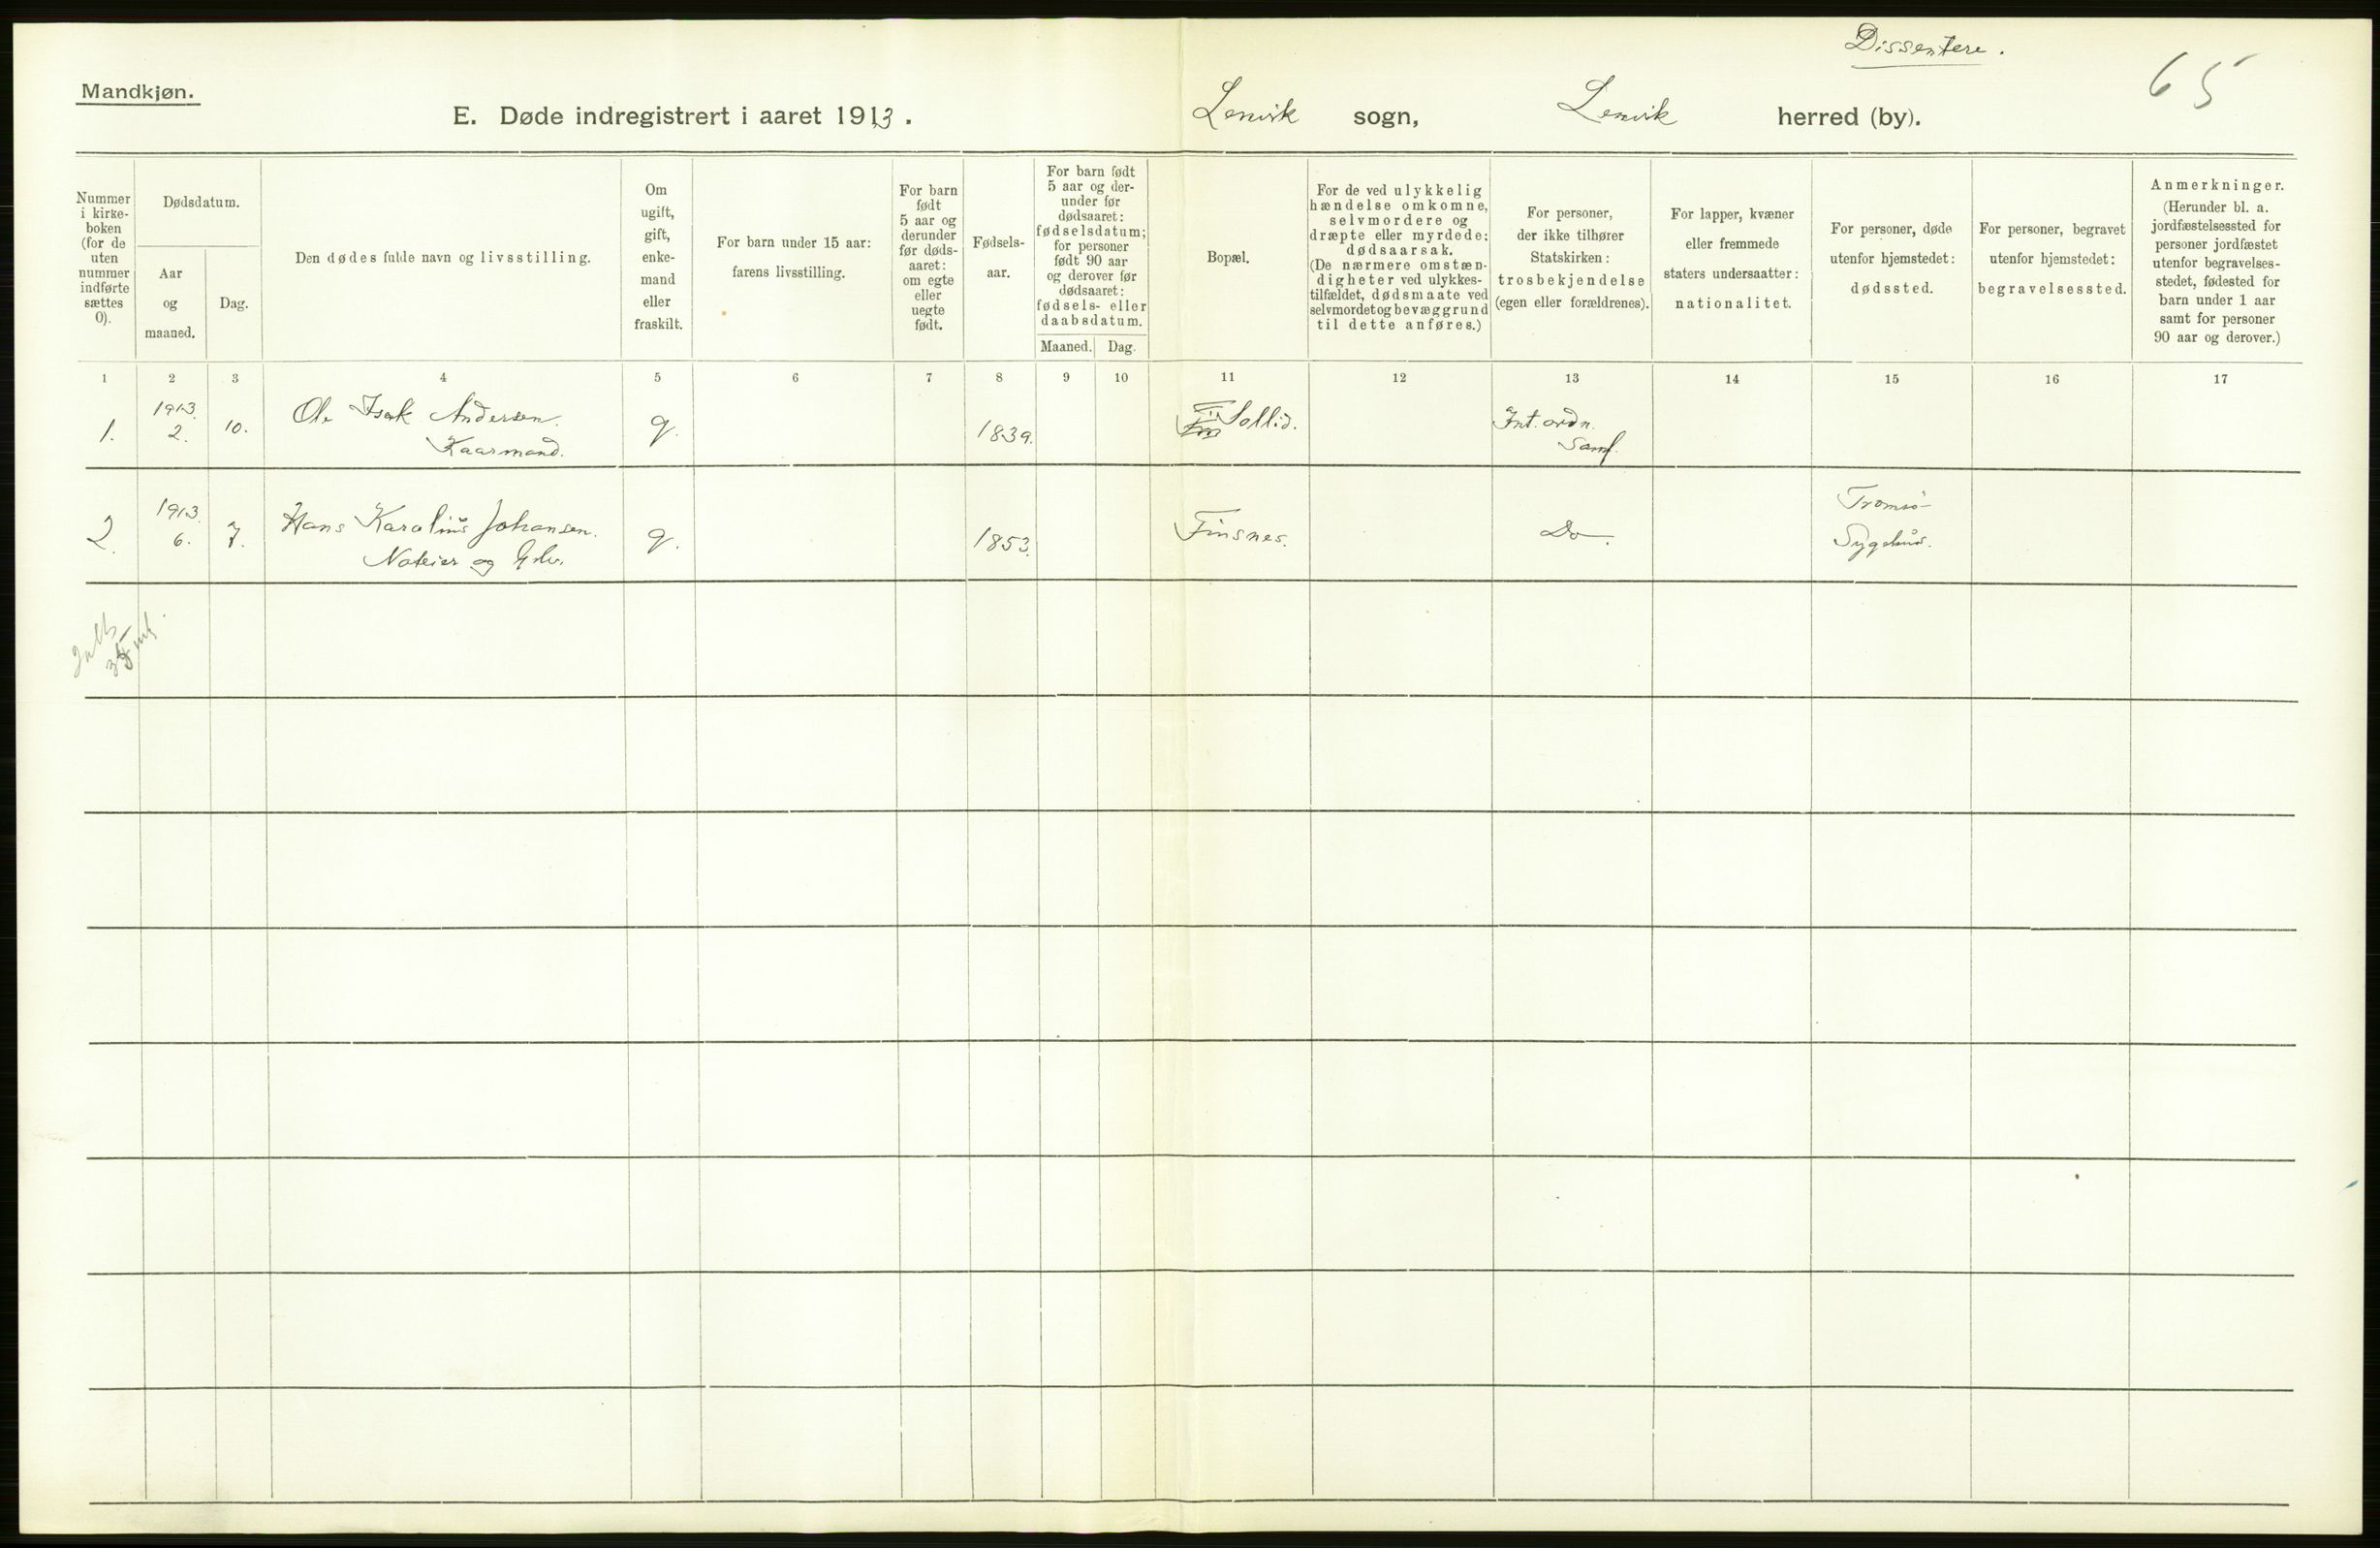 Dissentere.
65
Mandkjøn.
E. Døde indregistrert i aaret 1913. Lenvik sogn, Lenvik herred (by).
Nummer i kirke-boken (for de uten nummer indførte sættes 0).
Dødsdatum.
Aar og maaned.
Dag.
Den dødes fulde navn og livsstilling.
Om ugift, gift, enke-mand eller fraskilt.
For barn under 15 aar: farens livsstilling.
For barn født 5 aar og derunder før døds-aaret: om egte eller uegte født.
Fødsels-aar.
For barn født 5 aar og der-under før dødsaaret: fødselsdatum; for personer født 90 aar og derover før dødsaaret: fødsels- eller daabsdatum.
Maaned. Dag.
Bopæl.
For de ved ulykkelig hændelse omkomne, selvmordere og dræpte eller myrdede: dødsaarsak. (De nærmere omstæn-digheter ved ulykkes-tilfældet, dødsmaate ved selvmordet og bevæggrund til dette anføres.)
For personer, der ikke tilhører Statskirken: trosbekjendelse (egen eller forældrenes).
For lapper, kvæner eller fremmede staters undersaatter: nationalitet.
For personer, døde utenfor hjemstedet: dødssted.
For personer, begravet utenfor hjemstedet: begravelsessted.
Anmerkninger. (Herunder bl. a. jordfæstelsessted for personer jordfæstet utenfor begravelses-stedet, fødested for barn under 1 aar samt for personer 90 aar og derover.)
1 2 3 4 5 6 7 8 9 10 11 12 13 14 15 16 17
1. 1913. 2. 10. Ole Isak Andersen. g. 1839. Sollid. Int. ordn.
Kaarmand. Samf.
2. 1913. 6. 7. Hans Karolius Johansen. g. 1853. Finsnes. Do. Tromsø
Noteier og Sygehus.